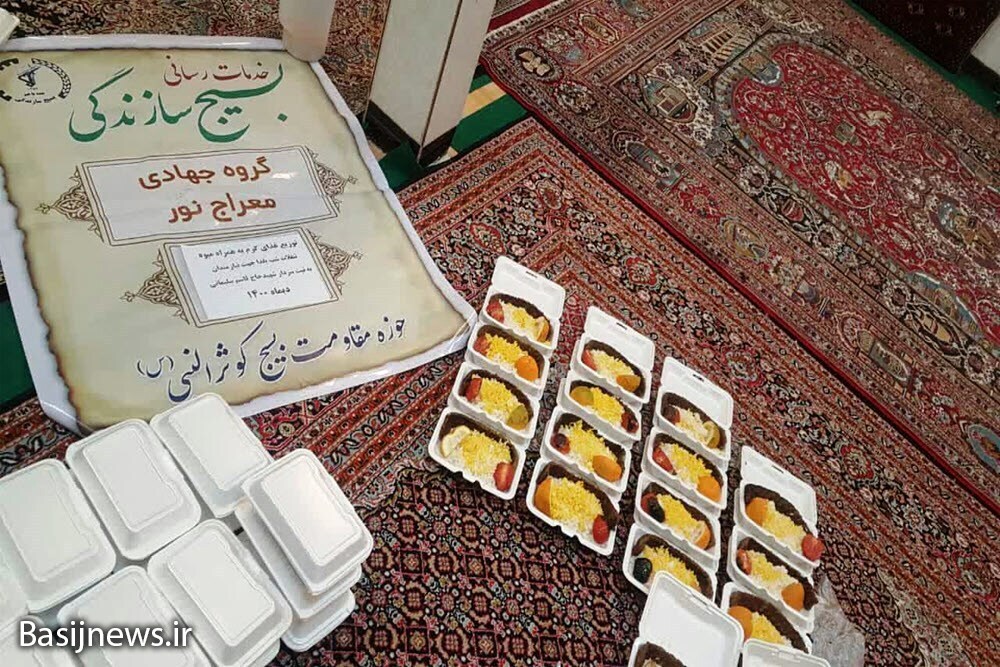 خدمات رسانی
بسیج سازندگی
گروه جهادی
معراج نور
توزیع غذای گرم به همراه میوه
تنقلات شب یلدا جهت نیازمندان
به نیت سردار شهید حاج قاسم سلیمانی
دیماه ۱۴۰۰
حوزه مقاومت بسیج کوثر النبی (س)
Basijnews.ir